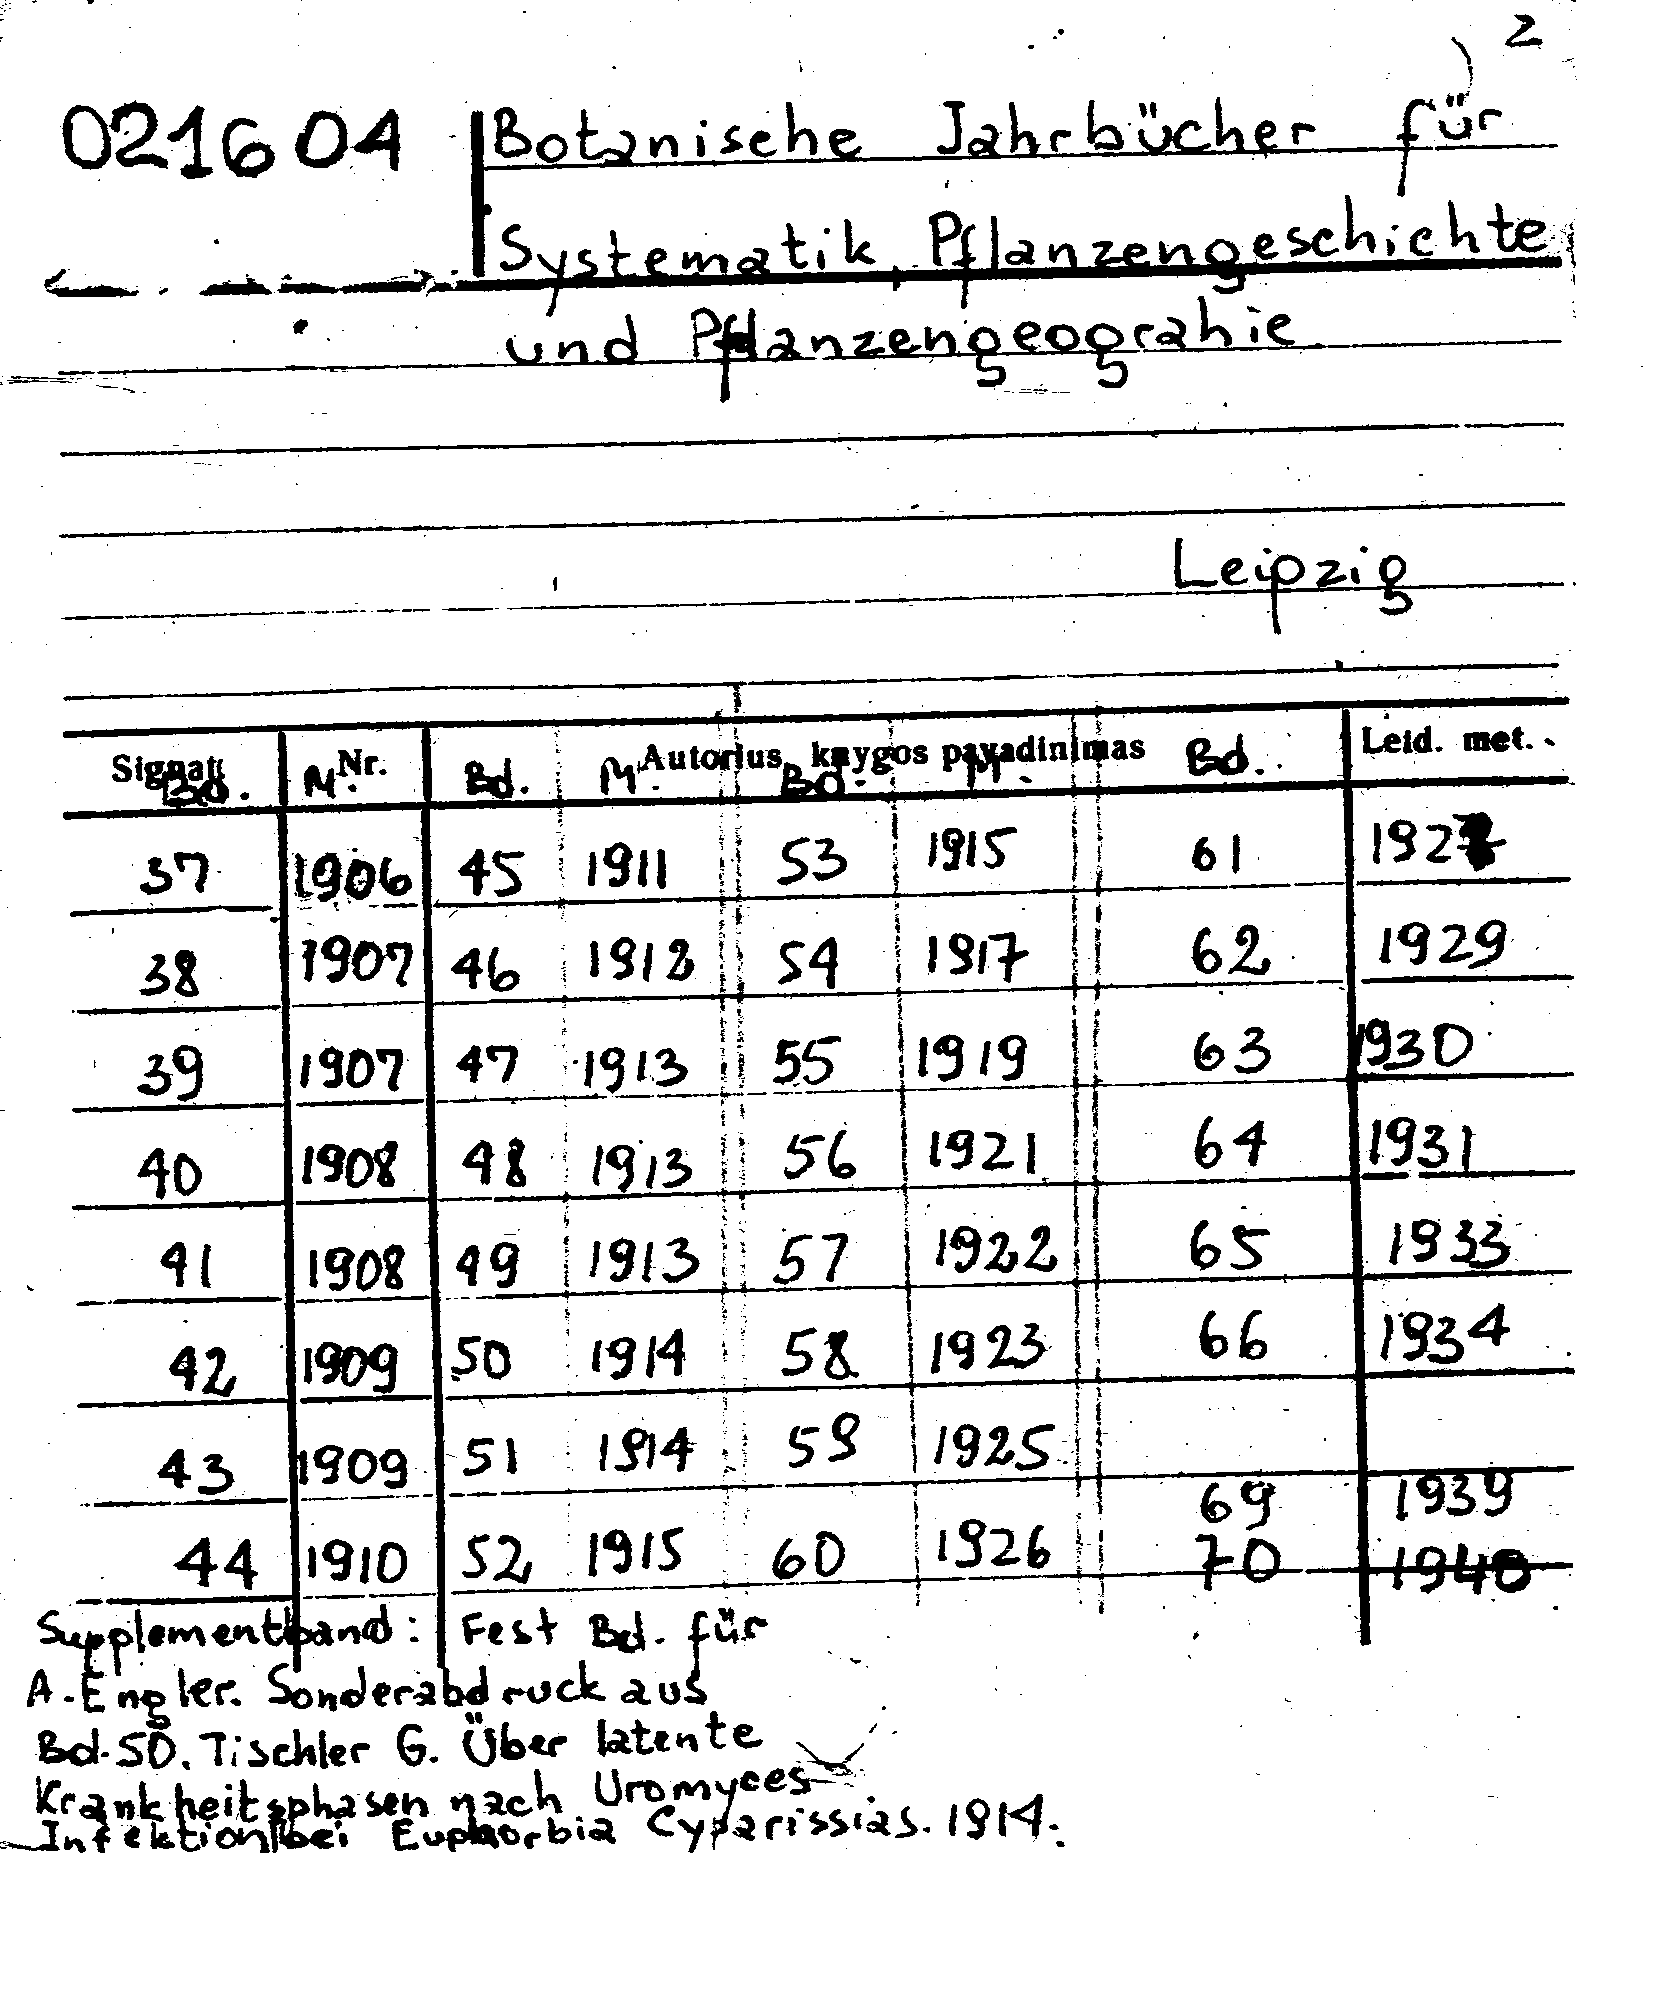 2
021604 Botanische Jahrbücher für
Systematik, Pflanzengeschichte
und Pflanzengeograhie
Leipzig
Signat. Nr. Autorius, knygos pavadinimas Leid. met.
Bd. M. Bd. M. Bd. M. Bd.
37 1906 45 1911 53 1915 61
38 1907 46 1912 54 1917 62 1929
39 1907 47 1913 55 1919 63 1930
40 1908 48 1913 56 1921 64 1931
41 1908 49 1913 57 1922 65 1933
42 1909 50 1914 58 1923 66 1934
43 1909 51 1914 59 1925
69 1939
44 1910 52 1915 60 1926 70 1940
Supplementband: Fest Bd. für
A. Engler. Sonderabdruck aus
Bd. 50. Tischler G. Über latente
Krankheitsphasen nach Uromyces
Infektion bei Euphorbia Cyparissias. 1914.